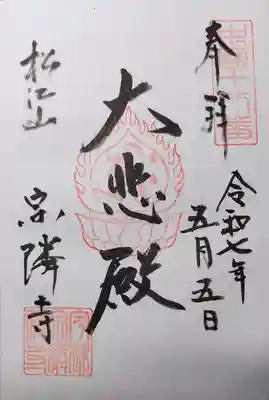 奉拝
令和七年
五月五日
大悲殿
松江山
宗隣寺